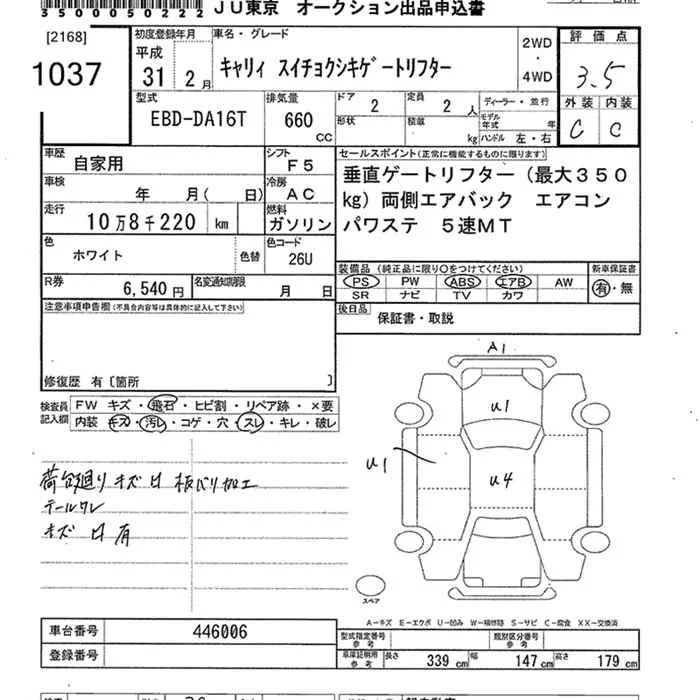 3500050222 JU東京 オークション出品申込書
[2168]
1037
初度登録年月 車名・グレード
平成
31 2月
キャリィ スイチョクシキゲートリフター
2WD
・
4WD
評価点
3.5
外装 内装
C C
型式 EBD-DA16T
排気量 660 CC
ドア 2
定員 2 人
ディーラー・並行
形状
積載 kg
モデル年式 年
ハンドル 左・右
車歴 自家用
シフト F5
車検 年 月( 日)
冷房 AC
走行 10万8千220 km
燃料 ガソリン
色 ホワイト 色替
色コード 26U
R券 6,540円
名変通知期限 月 日
セールスポイント(正常に機能するものに限ります)
垂直ゲートリフター(最大350
kg)両側エアバック エアコン
パワステ 5速MT
装備品(純正品に限り○をつけてください) 新車保証書
PS PW ABS エアB AW 有・無
SR ナビ TV カワ
後日品 保証書・取説
注意事項申告欄(不具合内容等は具体的に記入して下さい)
修復歴 有〔箇所 〕
検査員記入欄
FW キズ・飛石・ヒビ割・リペア跡・×要
内装 キズ・汚レ・コゲ・穴・スレ・キレ・破レ
荷台廻りキズ凹 板バリ加工
テールワレ
キズ 凹 有
A1
U1
U1
U4
スペア
A−キズ E−エクボ U−凹み W−補修跡 S−サビ C−腐食 XX−交換済
車台番号 446006
登録番号
型式指定番号 参考
類別区分番号 参考
車庫証明用 参考 長さ 339 cm 幅 147 cm 高さ 179 cm